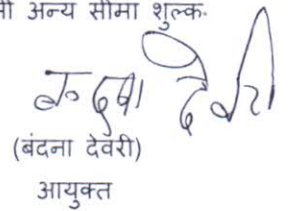 अन्य सीमा शुल्क.
बंदना देवरी
(बंदना देवरी)
आयुक्त